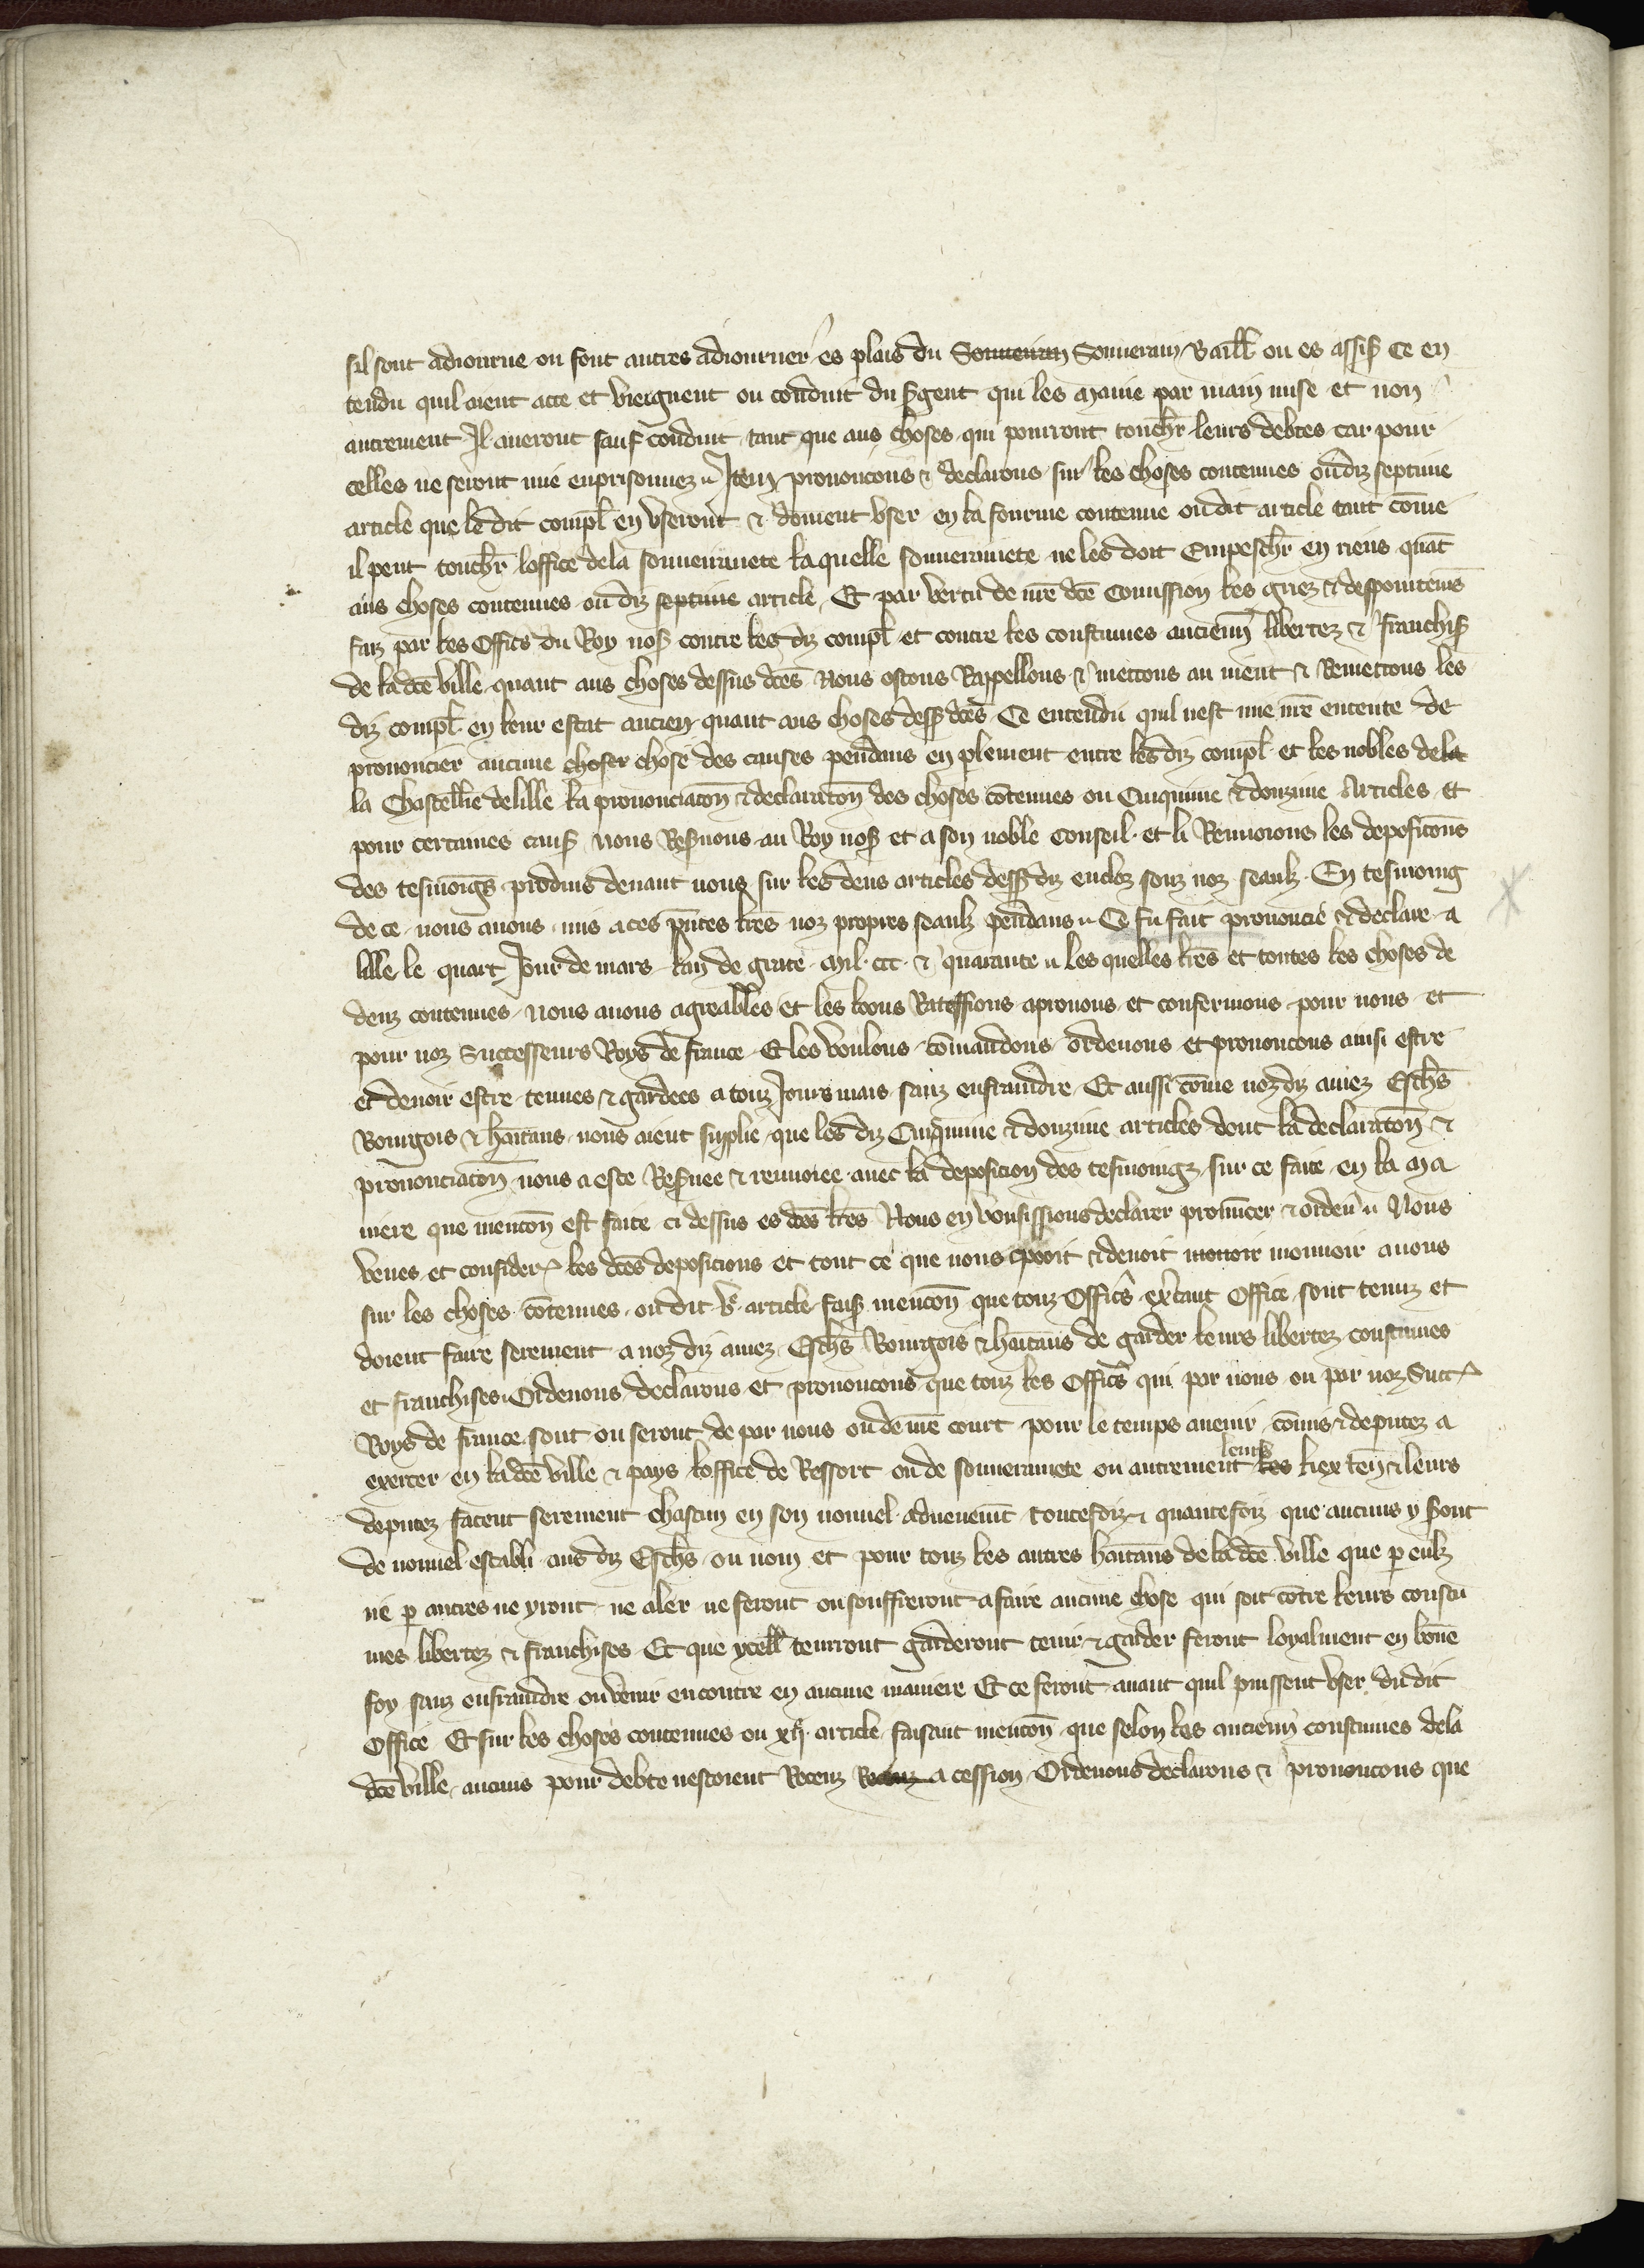 sil sont adiourne ou font autres adiourner es plais du Souueiran Souuerain Baill ou es assiſ Ce en
tendu quil aient acte et viengnent ou conduit du sgent qui les maine par main mise et non
autrement Il aueront sauf conduit tant que aus choses qui pourront touchr leurs debtes car pour
celles ne seront mie enprisonnez Item prononcons & declarons sur les choses contenues oudiz septime
article que le dit compl en vseront & doiuent vser en la fourme contenue oudit article tant cōme
il peut touchr loffice dela souuerainete la quelle souuerainete ne les doit Empeschr en riens quāt
aus choses contenues oudiz septime article Et par vertu de nr̄e dc̄e Comission les griez & despointemēs
faiz par les Offics du Roy nosſ contre les diz compl et contre les coustumes ancienn̄ libertez & franchiſ
de ladc̄e ville quant aus choses dessus dc̄es Nous ostons Rappellons & mettons au nient & Remettons les
diz compl en leur estat ancien quant aus choses desſ dc̄es Ce entendu quil nest mie nr̄e entente de
prononcier aucune choser chose des causes pendans en plement entre les diz compl et les nobles dela
la Chastellie delille la prononciacōn & declaracōn des choses cōtenues ou Cinquime & douzime Articles Et
pour certaines cauſ nous Resuons au Roy nosſ et a son noble Conseil et li Renuoions les deposicōns
des tesmoigs produis deuant nous sur les deus articles desſ diz enclos souz noz seaulz En tesmoing
de ce nous auons mis a ces pn̄tes lr̄es noz propres seaulz pendans Ce fu fait prononcie & declare a
lille le quart Iour de mars lan de grace Mil ccc & quarante les quelles lr̄es et toutes les choses de
denz contenues Nous auons agreables et les loons Ratefions aprouons et confermons pour nous et
pour noz Successeurs Roys de france Et les voulons cōmandons ordenons et prononcons ainsi estre
et deuoir estre tenues & gardees a touz Iours mais sanz enfraindre Et aussi cōme noz diz amez Eschs
Bourgois & hab̄itans nous aient suplie que les diz Cinquime & douzime articles dont la declaracōn &
prononciacōn nous a este Resuee & renuoiee auec la deposicion des tesmoingz sur ce faite en la ma
niere que mencōn est faite ci dessus es dc̄es lr̄es Nous en vousissions declarer pronūcer & orden̄ Nous
veues et consider les dc̄es deposicions et tout ce que nous pooit & deuoit mouoir mouuoir auons
sur les choses cōtenues oudit ve article faisſ mencōn que touz Offics exc̄ant Office sont tenuz et
doient faire serement a noz diz amez Eschs Bourgois & hab̄itans de garder leurs libertez coustumes
et franchises Ordenons declarons et prononcons que touz les Offics qui par nous ou par noz Succ
Roys de france sont ou seront de par nous ou de nr̄e court pour le temps auenir cōmis & deputez a
exercer en ladc̄e ville & pays loffice de Ressort ou de souuerainete ou autrement les leurs liex ten̄ & leurs
deputez facent serement chascun en son nouuel aduenemt toutefoiz & quantefoiz que aucuns y sont
de nouuel establi aus diz Eschs ou nom et pour touz les autres hab̄itans de ladc̄e ville que p eulz
ne p autres ne yront ne aler ne feront ou souffreront a faire aucune chose qui soit cōtre leurs coustu
mes libertez & franchises Et que ycell tenrront garderont tenir & garder feront loyalment en bōne
foy sanz enfraindre ou venir encontre en aucune maniere Et ce feront auant quil puissent vser dudit
Office Et sur les choses contenues ou xije article faisant mencōn que selon les ancienn̄ coustumes dela
dc̄e ville aucuns pour debte nestoient Receuz a cession Ordenons declarons & prononcons que